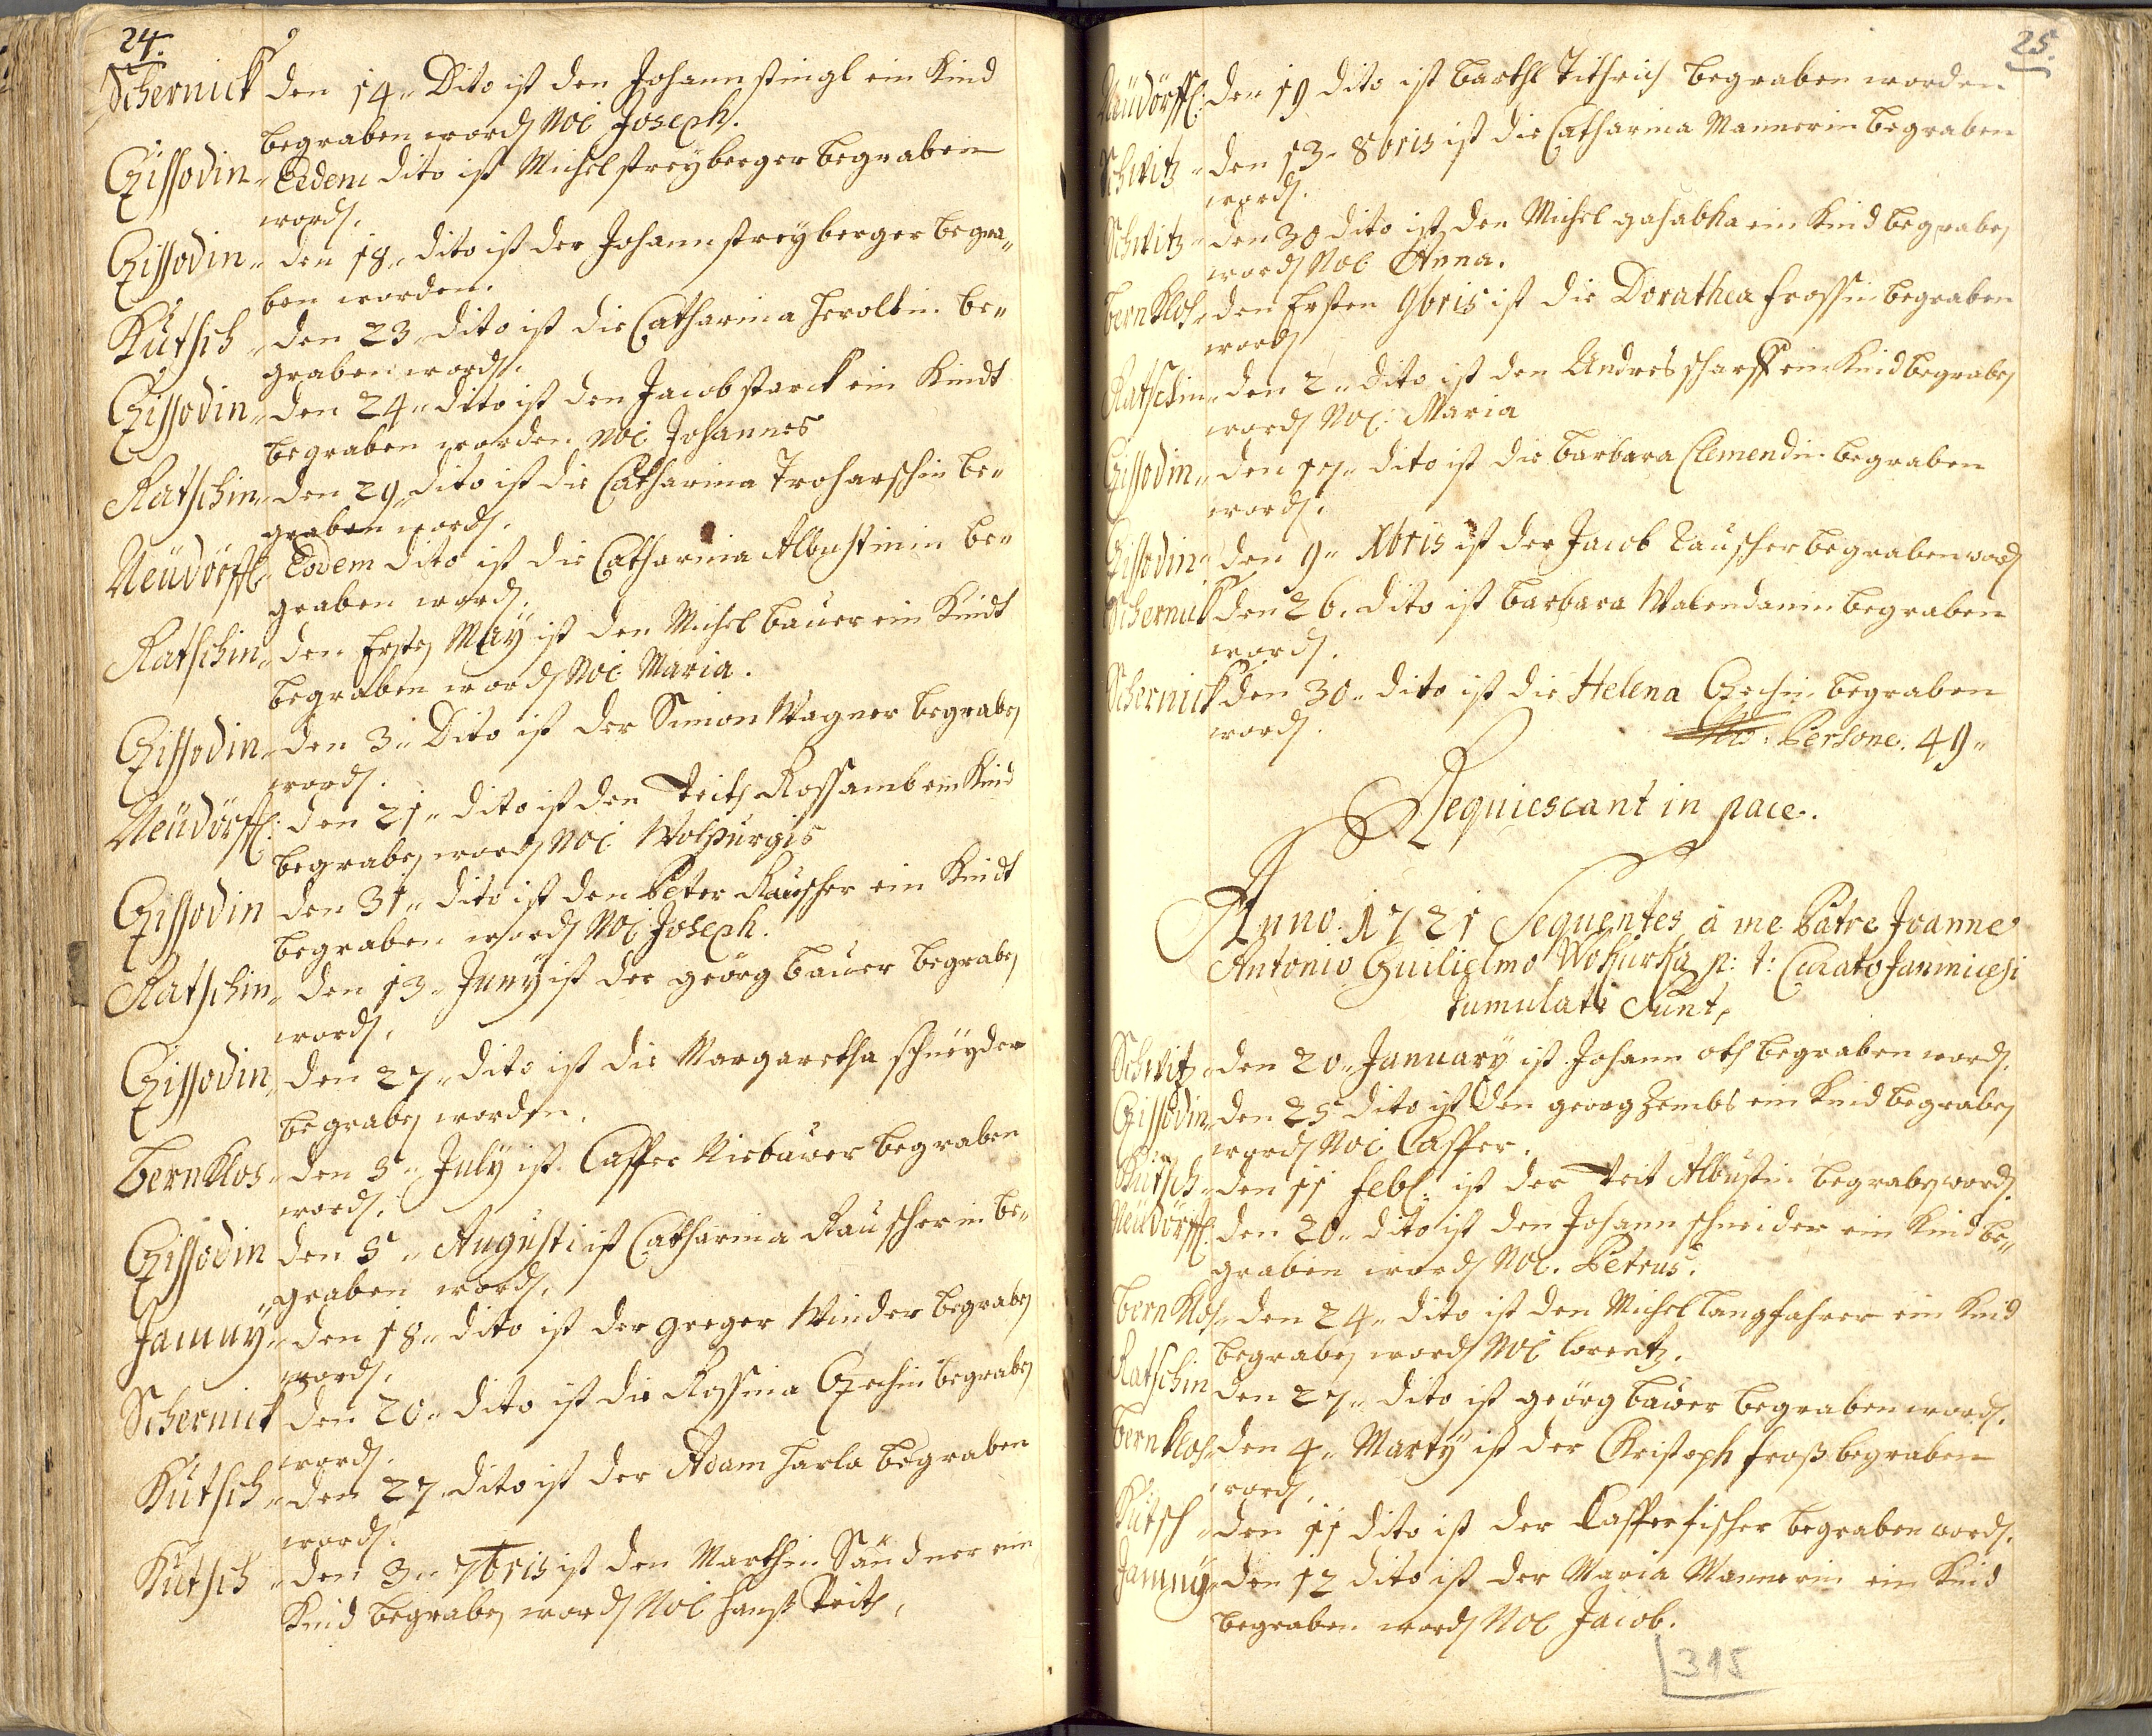 24.
Schernick den 14" Dito ist den Johann stingl ein Kind
begraben word Noi Joseph.
Gissodin " Eedem dito ist Michel streyberger begraben
word.
Gissodin " den 18" dito ist der Johann streyberger begra"
ben worden.
Kutsch " den 23" dito ist die Catharina heroltin be"
graben word.
Gissodin " den 24" dito ist den Jacob starck ein Kindt
begraben worden Noi Johannes
Ratschin " den 29" dito ist die Catharina Troharschin be"
graben word.
Neüdörffl " Eodem dito ist die Catharina Albustinin be"
graben word.
Ratschin " den Erste Maÿ ist den Michel bauer ein Kindt
begraben word Noi Maria.
Gissodin " den 3" Dito ist der Simon Wagner begrabe
word.
Neüdörffl: den 21" dito ist den Veith Rossamb ein Kind
begrabe word Noi Wolpurgis
Gissodin den 31" dito ist den Peter Rauscher ein Kindt
begraben word Noi Joseph.
Ratschin " den 13" Junÿ ist der geörg bauer begrabe
word.
Gissodin " den 27" dito ist die Margaretha schneyder
begrabe worden.
bernklos " den 5" Julÿ ist Casper Niebauer begraben
word.
Gissodin den 5" Augusti ist Catharina Rauscherin be"
graben word.
Jamnÿ " den 18" dito ist der greger Winder begrabe
word.
Schernick den 20" dito ist die Rossina Czechin begrabe
word.
Kutsch " den 27 dito ist der Adam harla begraben
word.
Kutsch " den 3" 7bris ist den Marthin Sandner ein
Kind begrabe word Noi hanß Veith,
25.
Neüdörffl: den 19 dito ist barthl Tithrich begraben worden
Schwitz " den 13" 8bris ist die Catharina Mannerin begraben
word.
Schwitz " den 30 dito ist den Michel gahabka ein Kind begrabe
word Noi Anna.
bernklos " den Ersten 9bris ist die Dorathea frossin begraben
word
Ratschin " den 2" dito ist den Andres scharff ein Kind begrabe
word Noi: Maria
Gissodin " den 17" dito ist die barbara Clemendin begraben
word.
Gissodin " den 9" Xbris ist der Jacob Rauscher begraben word
Schernick den 26. dito ist barbara Walendanin begraben
word.
Schernick den 30" dito ist die Helena Czechin begraben
word.
No: Persone. 49"
Requiescant in pace.
Anno. 1721 Sequentes à me Patre Joanne
Antonio Guilielmo Wokurka p: t: Curato Jamnicesi
tumulati Sunt,
Schwitz " den 20" Januarÿ ist Johann oth begraben word.
Gissodin " den 25 dito ist den georg Zembs ein Kind begrabe
word Noi Casper.
Kutsch " den 11 febl: ist der Veit Albustin begrabe word.
Neüdörffl: den 20" dito ist den Johann schneider ein Kind be"
graben word Noi. Petrus.
bernklos " den 24" dito ist den Michel langfahrer ein Kind
begrabe word Noi lorentz.
Ratschin den 27" dito ist geörg bauer begraben word.
bernklos " den 4" Martÿ ist der Christoph froß begraben
word.
Kütsch " den 11 dito ist der Casper fischer begraben word.
Jamnÿ " den 12 dito ist der Maria Mannerin ein Kind
begraben word Noi Jacob.
315